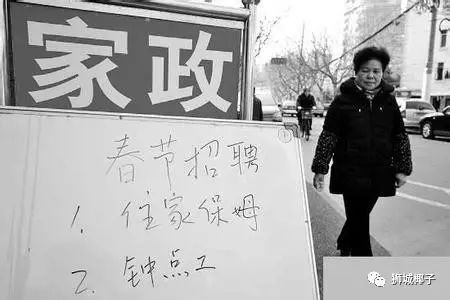 家政
春节招聘
1. 住家保姆
2. 钟点工
狮城椰子